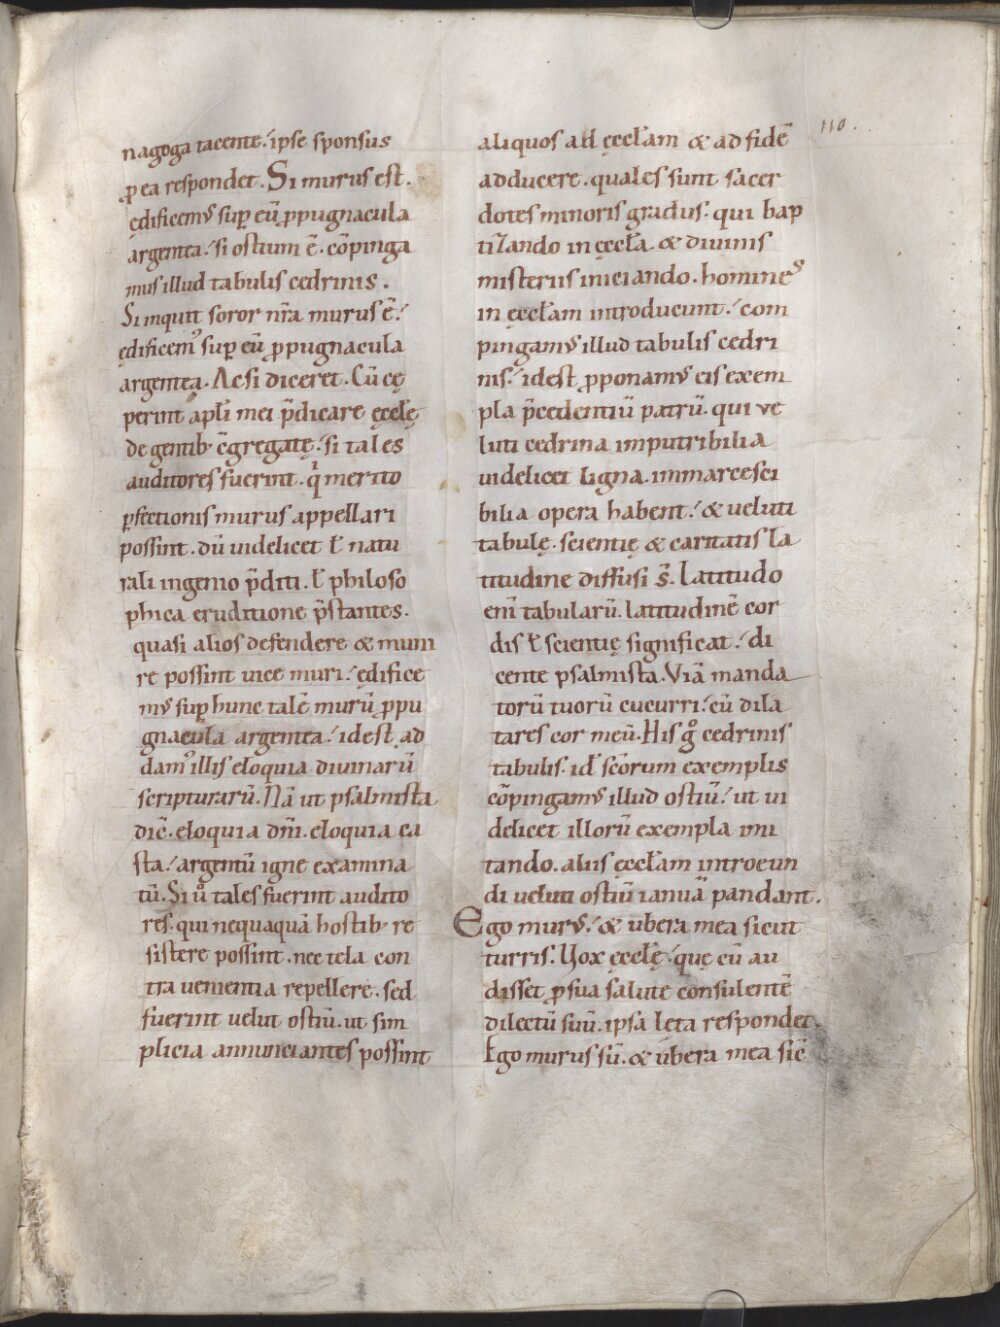 110.
nagoga tacente. ipse sponsus
ꝓ ea respondet. Si murus est.
ędificemꝰ sup̲ eū ꝓpugnacula
argentea. si ostium ē. cōpinga
mus illud tabulis cedrinis.
Si inquit soror nr̄a murus ē.
ędificemꝰ sup̲ eū ꝓpugnacula
argentea. Ac si diceret. Cū cę
perint apl̄i mei p̄dicare ęccl̄ę
de gentib; c̄gregatę. si tales
auditores fuerint. qͥ merito
ꝑfectionis murus appellari
possint. dū uidelicet ł natu
rali ingenio p̄diti. ł philoso
phica eruditione p̄stantes.
quasi alios defendere & muni
re possint uice muri. ędifice
mꝰ sup̲ hunc talē murū ꝓpu
gnacula argentea. idest ad
damꝰ illis eloquia diuinarū
scripturarū. Nā ut psalmista
dic̄. eloquia dn̄i. eloquia ca
sta. argentū igne examina
tū. Si ů tales fuerint audito
res. qui nequaquā hostib; re
sistere possint. nec tela con
tra uenientia repellere. sed
fuerint uelut ostiū. ut sim
plicia annunciantes possint
aliquos ad ęccl̄am & ad fidē
adducere. quales sunt sacer
dotes minoris gradus. qui bap
tizando in ęccl̄a. & diuinis
misteriis iniciando. homines
in ęccl̄am introducunt. com
pingamꝰ illud tabulis cedri
nis. idest ꝓponamꝰ eis exem
pla p̄cedentiū patrū. qui ve
luti cedrina imputribilia
uidelicet ligna. immarcesci
bilia opera habent. & ueluti
tabulę. scientię & caritatis la
titudine diffusi s̄. Latitudo
eni̅ tabularū. latitudinē cor
dis ł scientię significat. di
cente psalmista. Viā manda
torū tuorū cucurri. cū dila
tares cor meū. His g̊ cedrinis
tabulis. id ÷ sc̄orum exemplis
cōpingamꝰ illud ostiū. ut ui
delicet illorū exempla imi
tando. aliis ęccl̄am introeun
di ueluti ostiū ianuā pandant.
Ego murꝰ. & ubera mea sicut
turris. Vox ęccl̄ę. quę cū au
disset ꝓ sua salute consulentē
dilectū suū. ipsa lęta respondet.
Ego murus sū. & ubera mea sic̄